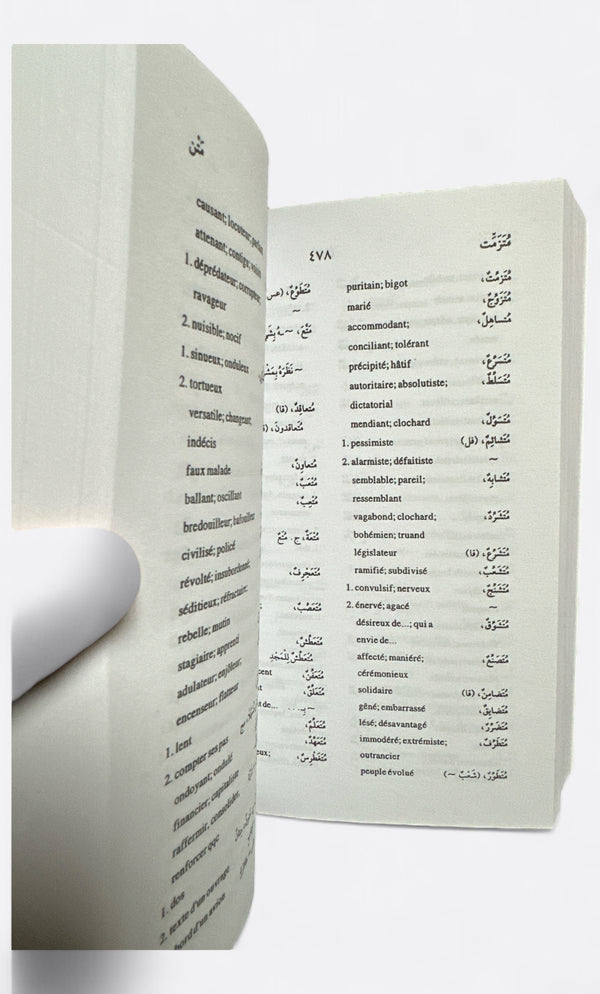 مَتْن
causant; locuteur;
attenant; contigu;
1. déprédateur;
ravageur
2. nuisible; nocif
1. sinueux; onduleux
2. tortueux
versatile; changeant;
indécis
faux malade
ballant; oscillant
bredouilleur; bafouilleur
civilisé; policé
révolté; insubordonné;
séditieux; réfractaire;
rebelle; mutin
stagiaire; apprenti
adulateur; enjôleur;
encenseur; flatteur
1. lent
2. compter ses pas
ondoyant; ondulé
financier; capitaliste
raffermir, consolider,
renforcer qqc
1. dos
2. texte d'un ouvrage
bord d'un avion
٤٧٨
مُتَزَمِّت
مُتَطَوِّعٌ، (عس
~
~ نَظَرَهُ
مُتعاقِدٌ، (قا)
مُتعاقدونَ، (قا
مُتعاوِنٌ،
مُتعَبٌ،
مُتعِبٌ،
مُتعَةٌ، ج. مُتَعٌ
مُتَعَجْرِفٌ،
مُتَعَصِّبٌ،
مُتَعَطِّشٌ،
مُتَعَطِّشٌ لِلْمَجْدِ
مُتَعَفِّنٌ،
مُتَعَلِّقٌ،
مُتَعَلِّمٌ،
مُتَعَهِّدٌ،
مُتَغَطْرِسٌ،
مُتَزَمِّتٌ، puritain; bigot
مُتَزَوِّجٌ، marié
مُتَساهِلٌ، accommodant;
conciliant; tolérant
مُتَسَرِّعٌ، précipité; hâtif
مُتَسَلِّطٌ، autoritaire; absolutiste;
dictatorial
مُتَسَوِّلٌ، mendiant; clochard
مُتَشائِمٌ، (فل) 1. pessimiste
~ 2. alarmiste; défaitiste
مُتَشابِهٌ، semblable; pareil;
ressemblant
مُتَشَرِّدٌ، vagabond; clochard;
bohémien; truand
مُتَشَرِّعٌ، (قا) législateur
مُتَشَعِّبٌ، ramifié; subdivisé
مُتَشَنِّجٌ، 1. convulsif; nerveux
~ 2. énervé; agacé
مُتَشَوِّقٌ، désireux de...; qui a
envie de...
مُتَصَنِّعٌ، affecté; maniéré;
cérémonieux
مُتَضامِنٌ، (قا) solidaire
مُتَضايِقٌ، gêné; embarrassé
مُتَضَرِّرٌ، lésé; désavantagé
مُتَطَرِّفٌ، immodéré; extrémiste;
outrancier
مُتَطَوِّرٌ، (شَعْبٌ ~) peuple évolué